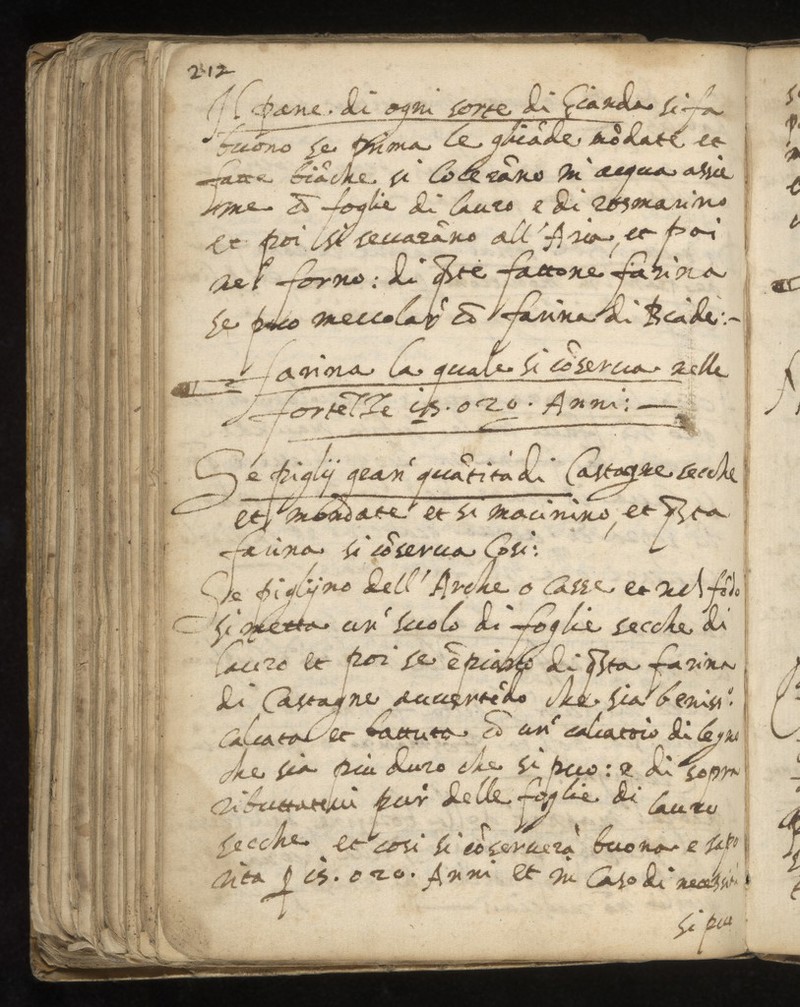 212
Il pane di ogni sorte di Gianda si fa
buono se prima le ghiãde mõdate et
fatte biãche si cocerãno in acqua assie
me cõ foglie di lauro e di rosmarino
et poi si seccarãno all'Aria, et poi
nel forno: di q̃ste fattone farina
se puo meccolar cõ farina di Biade:-
farina la quale si cõserua nelle
forteZZe 15. o 20. Anni:—
Se piglij gran quãtità di Castagne secche
et mondate et si macinino, et q̃sta
farina si cõserua Cosi:
Se piglijno dell'Arche o casse et nel fõdo
si metta un suolo di foglie secche di
lauro et poi se ẽpiano di q̃sta farina
di Castagne auuertẽdo che sia beniss.º
calcata et battuta cõ un calcattoio di legno
che sia piu duro che si puo: e di sopra
ributtateui pur delle foglie di lauro
secche et cosi si cõseruerà buona e sapo
rita ꝑ 15. o 20. Anni et in Caso di necessità
si puo